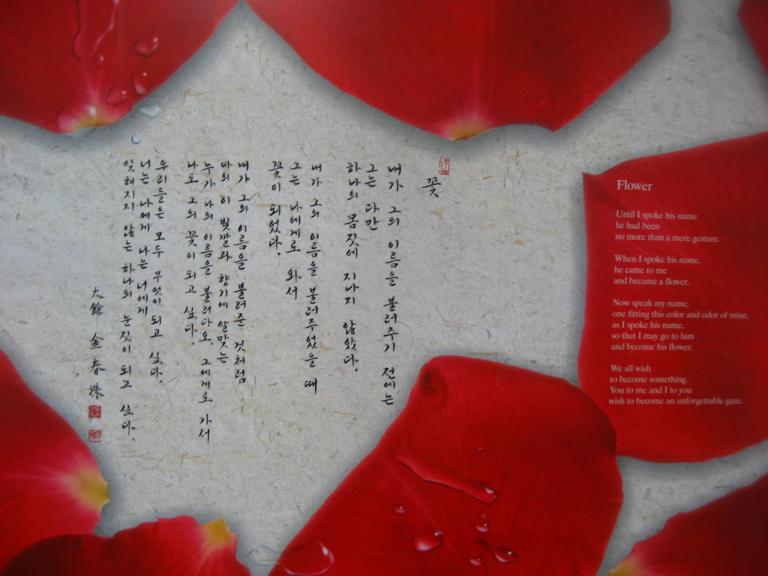 꽃
내가 그의 이름을 불러주기 전에는
그는 다만
하나의 몸짓에 지나지 않았다.
내가 그의 이름을 불러주었을 때
그는 나에게로 와서
꽃이 되었다.
내가 그의 이름을 불러준 것처럼
나의 이 빛깔과 향기에 알맞는
누가 나의 이름을 불러다오. 그에게로 가서
나도 그의 꽃이 되고 싶다.
우리들은 모두 무엇이 되고 싶다.
너는 나에게 나는 너에게
잊혀지지 않는 하나의 눈짓이 되고 싶다.
大餘 金春洙
Flower
Until I spoke his name
he had been
no more than a mere gesture.
When I spoke his name,
he came to me
and became a flower.
Now speak my name,
one fitting this color and odor of mine,
as I spoke his name,
so that I may go to him
and become his flower.
We all wish
to become something.
You to me and I to you
wish to become an unforgettable gaze.